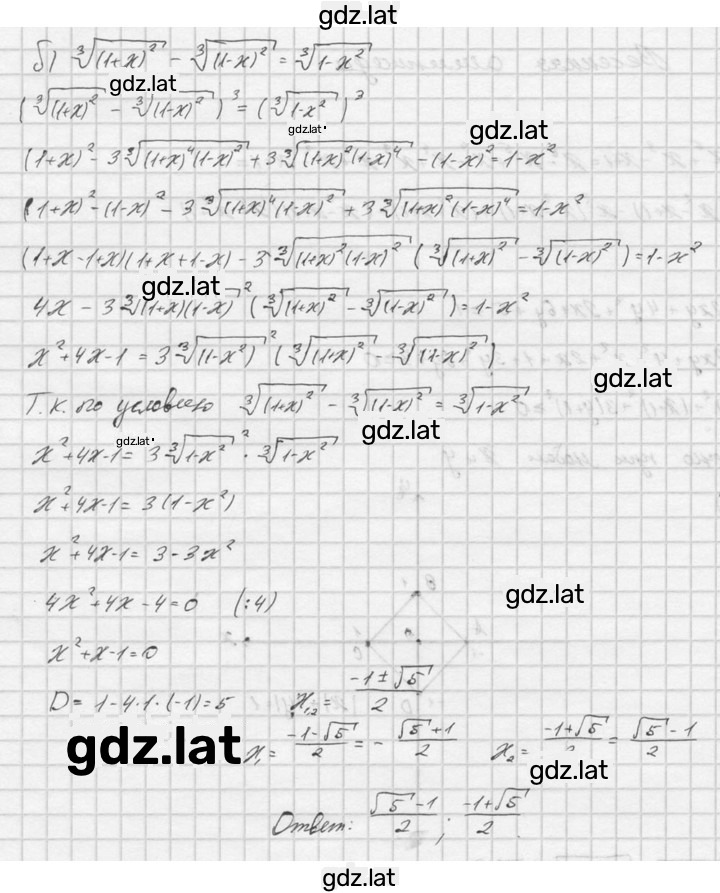 gdz.lat
б) ∛(1+x)² - ∛(1-x)² = ∛1-x²
gdz.lat
(∛(1+x)² - ∛(1-x)²)³ = (∛1-x²)³
gdz.lat
gdz.lat
(1+x)² - 3∛(1+x)⁴(1-x)² + 3∛(1+x)²(1-x)⁴ - (1-x)² = 1-x²
(1+x)² - (1-x)² - 3∛(1+x)⁴(1-x)² + 3∛(1+x)²(1-x)⁴ = 1-x²
(1+x-1+x)(1+x+1-x) - 3∛(1+x)²(1-x)² (∛(1+x)² - ∛(1-x)²) = 1-x²
gdz.lat
4x - 3∛(1+x)(1-x)² (∛(1+x)² - ∛(1-x)²) = 1-x²
x²+4x-1 = 3∛(1-x²)² (∛(1+x)² ∛(1-x)²)
gdz.lat
Т.к. по условию ∛(1+x)² - ∛(1-x)² = ∛1-x²
gdz.lat
gdz.lat
x²+4x-1 = 3∛1-x²² · ∛1-x²
x²+4x-1 = 3(1-x²)
x²+4x-1 = 3-3x²
gdz.lat
4x²+4x-4=0 (:4)
x²+x-1=0
D = 1-4·1·(-1)=5 x₁,₂ = -1±√5/2
gdz.lat
x₁ = -1-√5/2 = - √5+1/2 x₂ = -1+√5/2 = √5-1/2
gdz.lat
Ответ: √5-1/2 ; -1+√5/2
gdz.lat